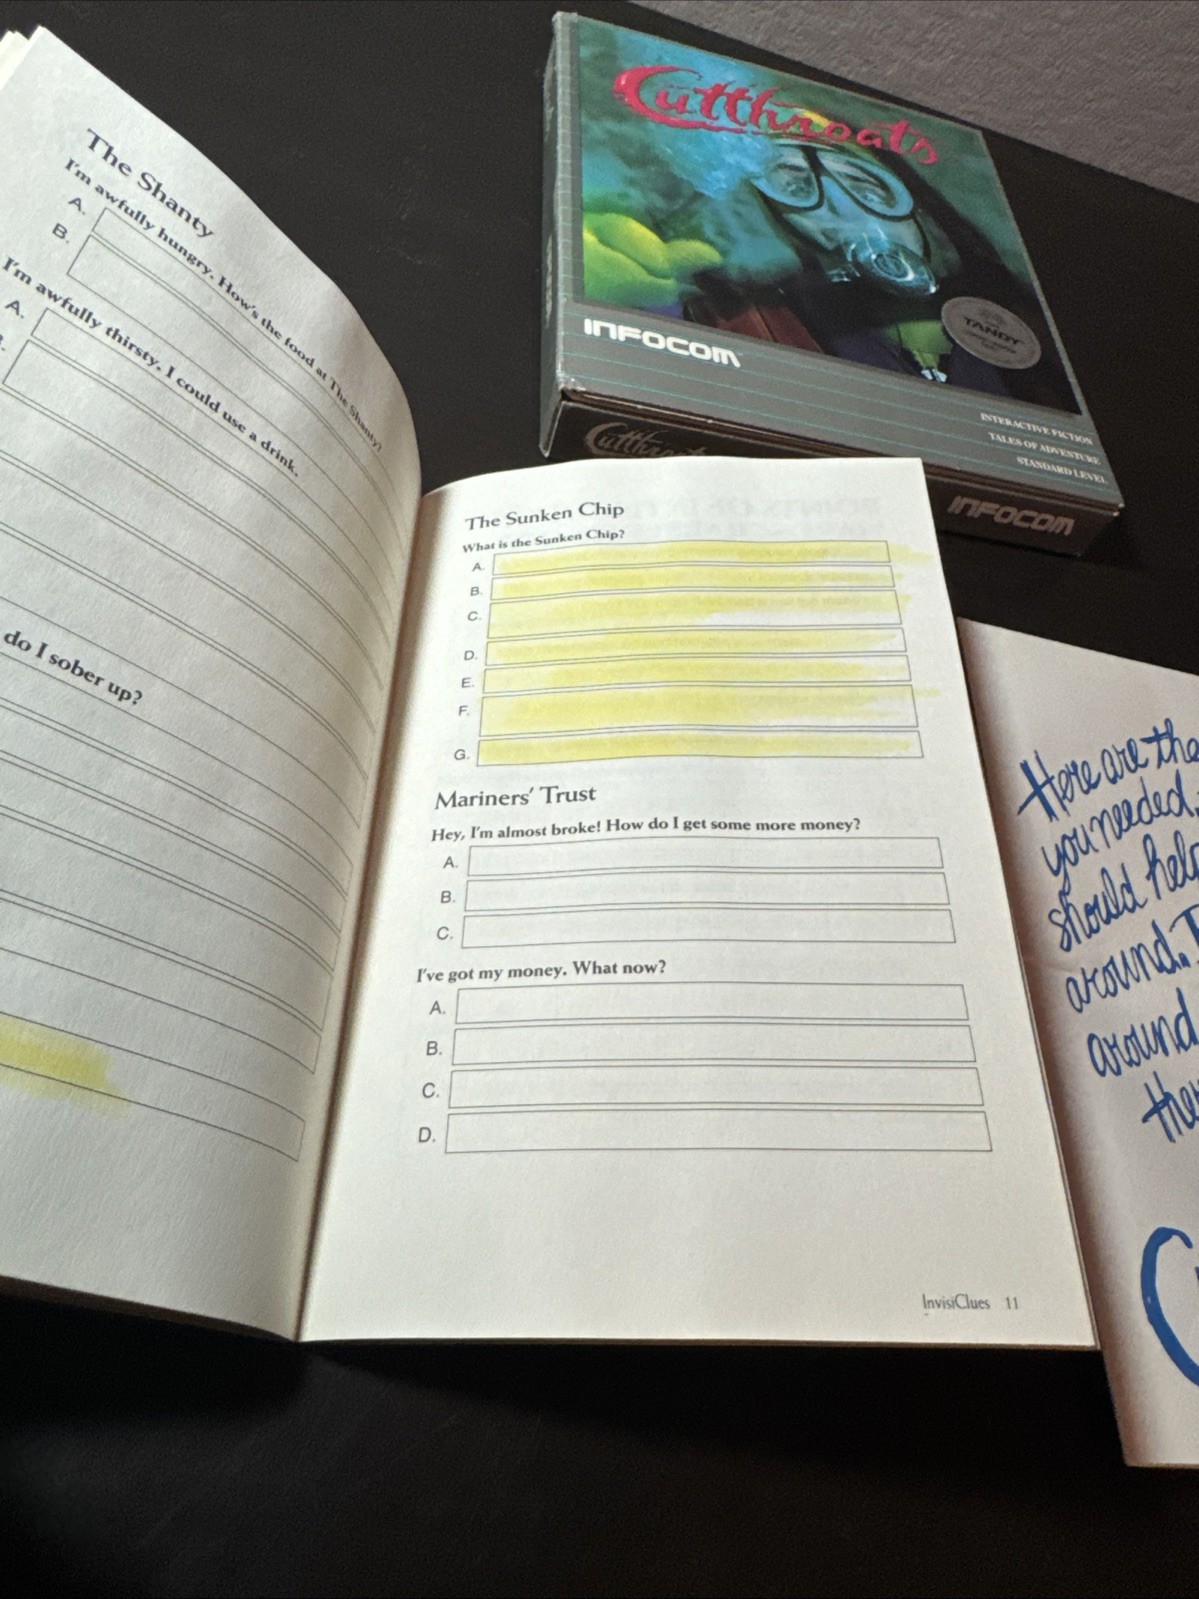 The Shanty
I'm awfully hungry. How's the food at The Shanty?
A.
B.
I'm awfully thirsty. I could use a drink.
A.
do I sober up?
The Sunken Chip
What is the Sunken Chip?
A.
B.
C.
D.
E.
F.
G.
Mariners' Trust
Hey, I'm almost broke! How do I get some more money?
A.
B.
C.
I've got my money. What now?
A.
B.
C.
D.
InvisiClues 11
Cutthroats
INFOCOM
TANDY
INTERACTIVE FICTION
TALES OF ADVENTURE
STANDARD LEVEL
INFOCOM
Here are the
you needed.
should help
around.
around